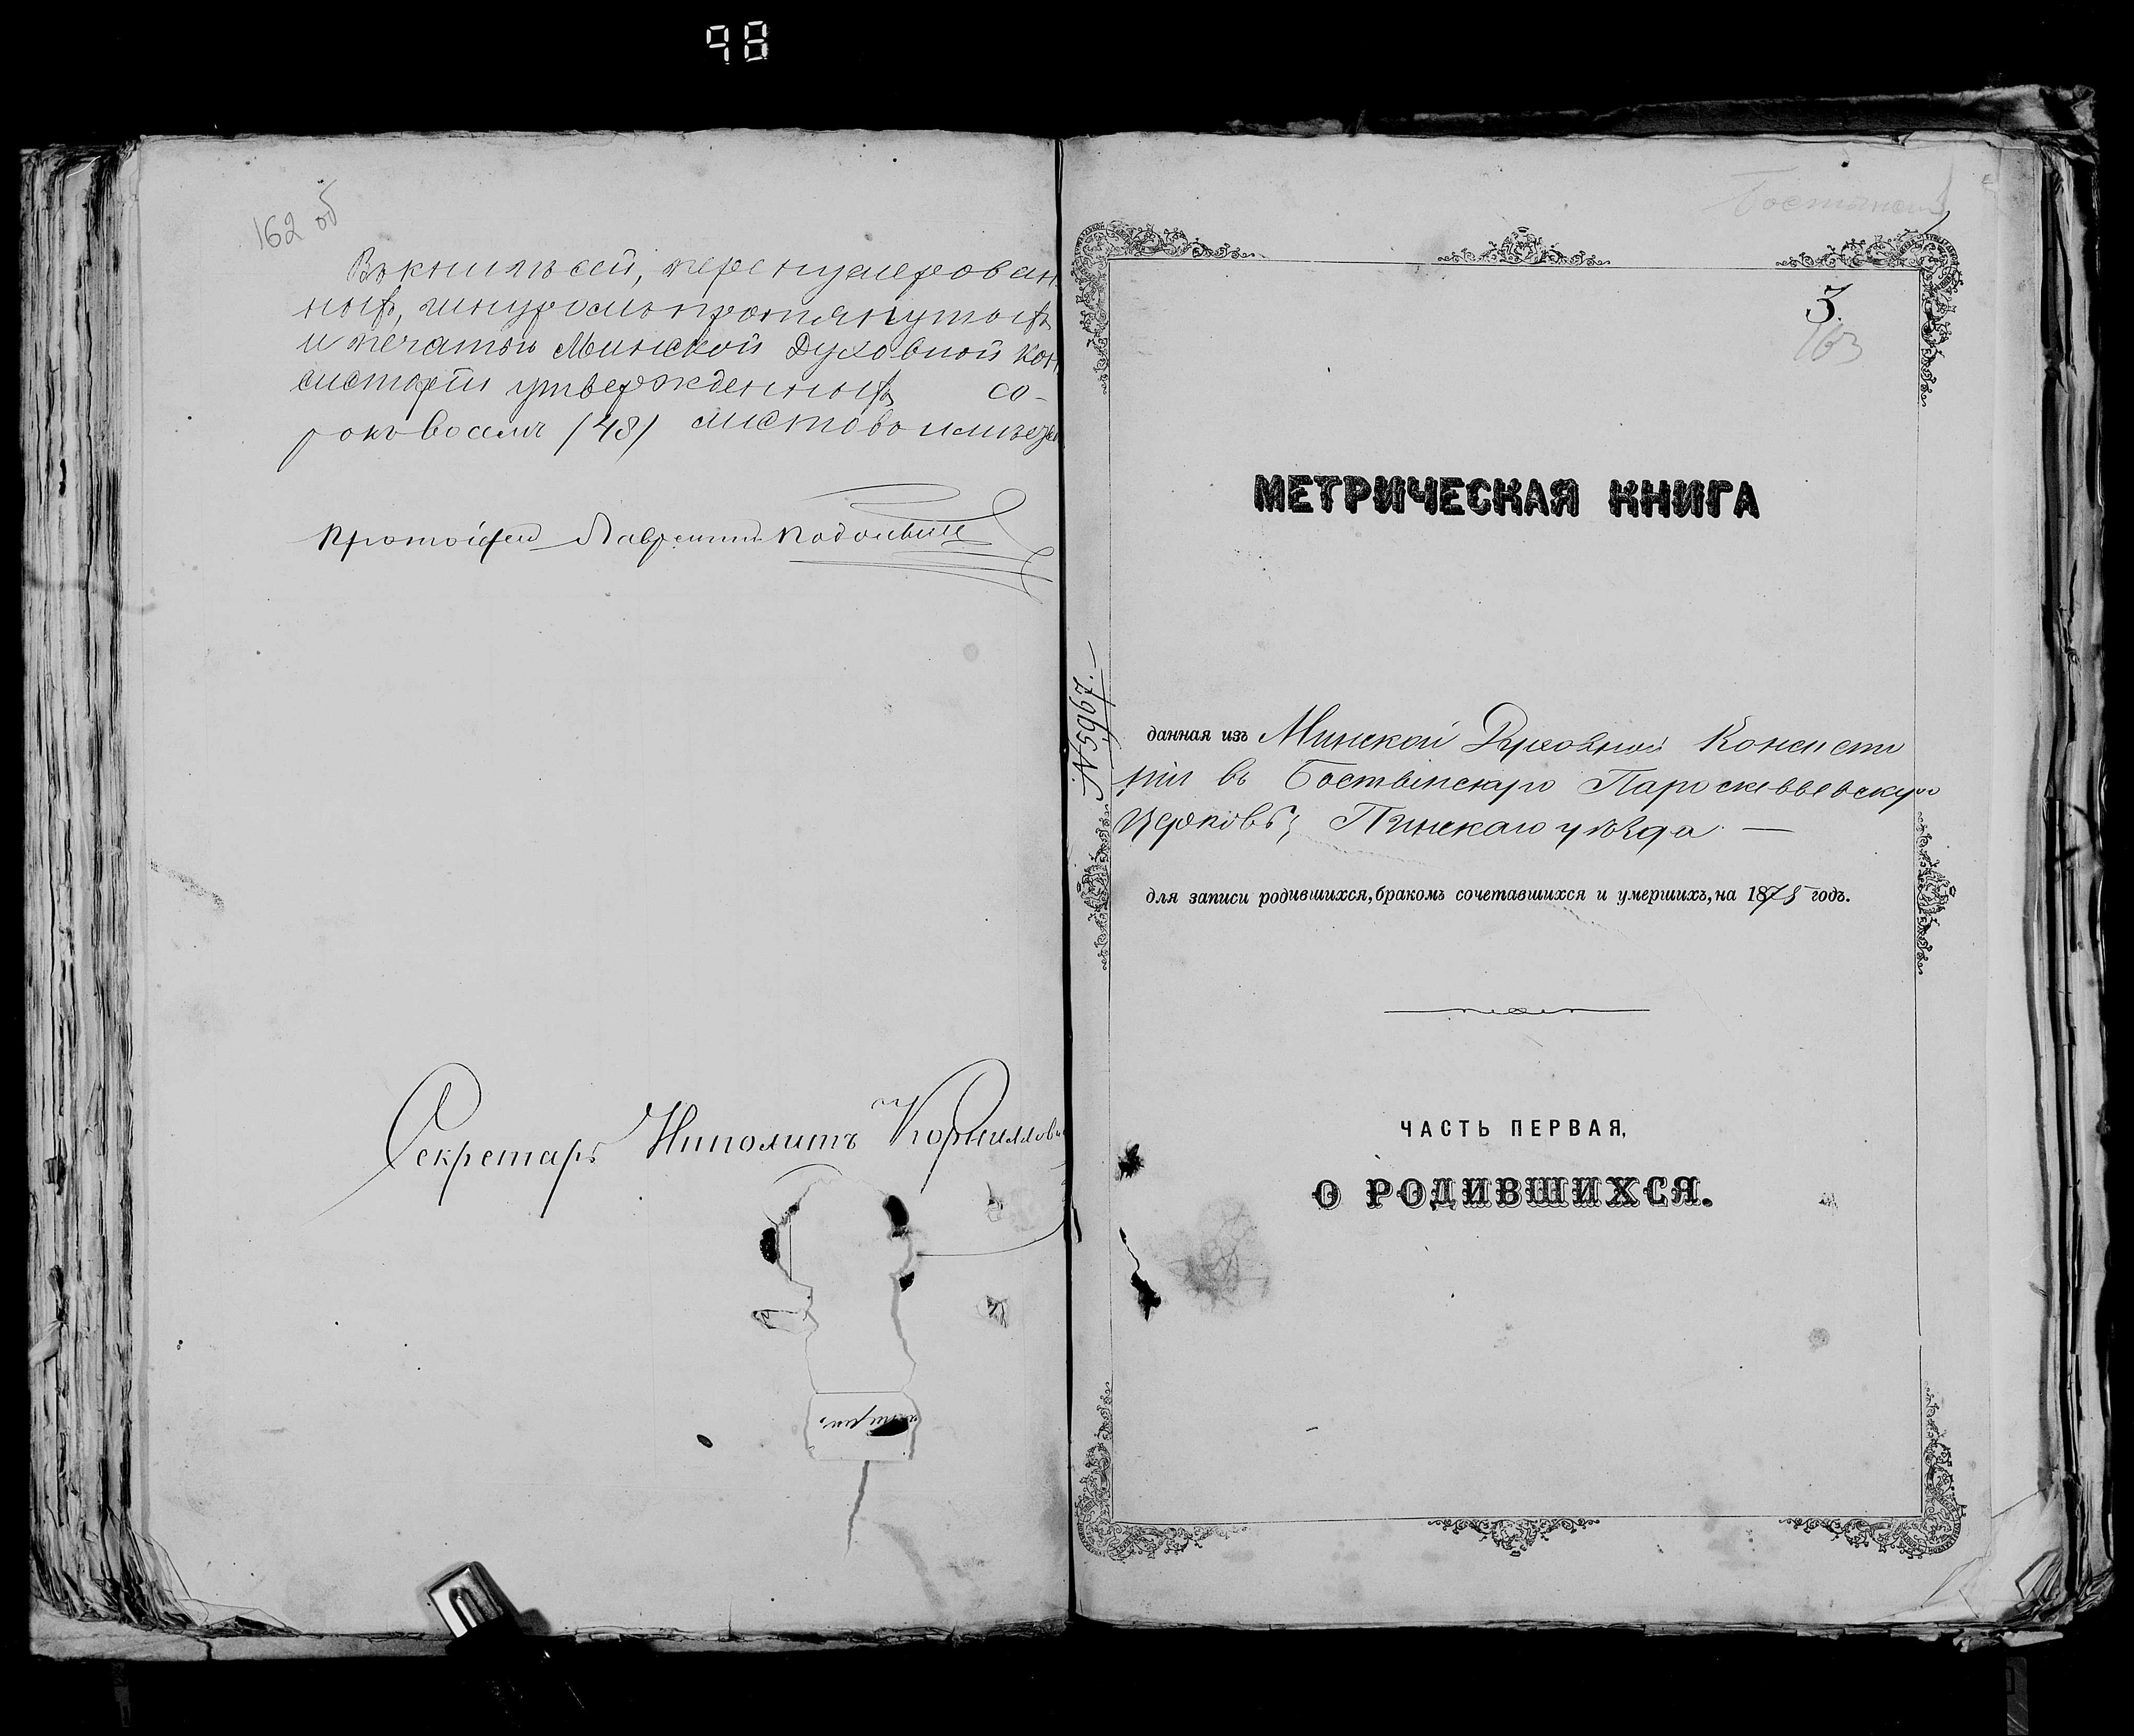 98
162 об
Въ книгѣ сей, перенумерован
ныхъ, шнуромъ протянутыхъ
и печатью Минской Духовной Кон
систоріи утвержденныхъ со-
рокъ восемь /48/ листовъ имѣется
Протоіерей Лаврентій
Секретарь Иполитъ
3.
163
МЕТРИЧЕСКАЯ КНИГА
№ 5967.
данная изъ Минской Духовной Консисто
ріи въ Бостынскую Параскевіевскую
Церковь, Пинскаго уѣзда —
для записи родившихся, бракомъ сочетавшихся и умершихъ, на 1875 годъ.
ЧАСТЬ ПЕРВАЯ,
О РОДИВШИХСЯ.